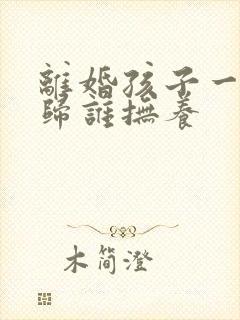 離婚孩子一
歸誰撫養
木简澄